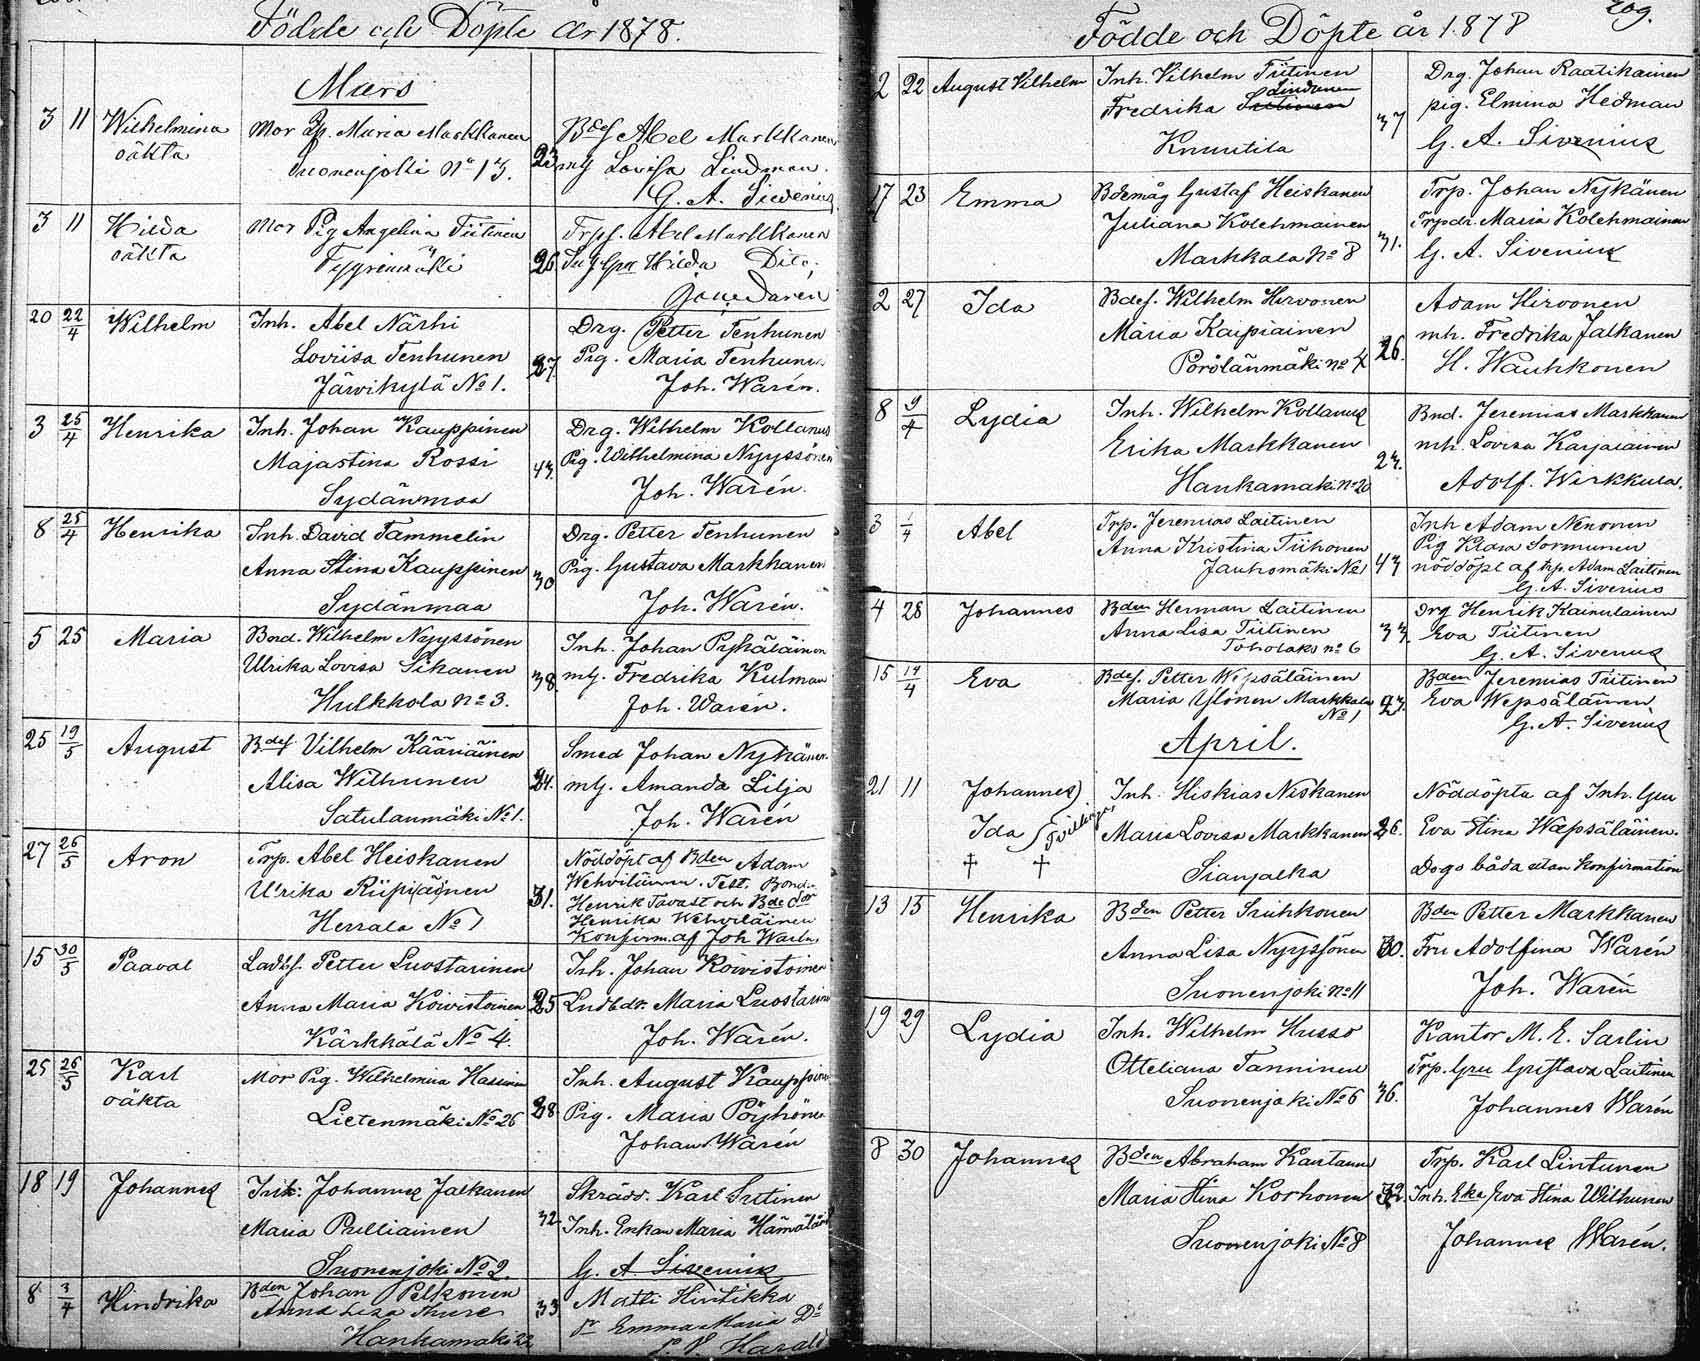 Födde och Döpte År 1878.
Mars
3 11 Wilhelmina Mor Pig. Maria Markkanen Bdes Abel Markkanen
oäkta Suonenjoki No 13. 23 mtj Lovisa Lindman.
G. A. Sivenius
3 11 Hilda Mor Pig Angelina Tiitinen Trpf. Abel Markkanen
oäkta Tyyrinmäki 26 Hilda Dito,
20 22/4 Wilhelm Inh. Abel Närhi Drg. Petter Tenhunen
Loviisa Tenhunen 27. Pig. Maria Tenhunen
Järvikylä No 1. Joh. Warén.
3 25/4 Henrika Inh. Johan Kauppinen Drg. Wilhelm Kollanus
Majastina Rossi 43. Pig. Wilhelmina Nyyssönen
Sydänmaa Joh. Warén.
8 25/4 Henrika Inh. David Tammelin Drg. Petter Tenhunen
Anna Stina Kauppinen 30 Pig. Gustava Markkanen
Sydänmaa Joh. Warén.
5 25 Maria Bond. Wilhelm Nyyssönen Inh. Johan Pykäläinen
Ulrika Lovisa Sikanen 38. mtj. Fredrika Kulman
Hulkkola No 3. Joh. Warén.
25 19/5 August Bdes Vilhelm Kääriäinen Smed Johan Nykänen
Alisa Wilhunen 24. mtj. Amanda Lilja
Satulanmäki No 1. Joh. Warén
27 26/5 Aron Trp. Abel Heiskanen Nöddöpt af Bden Adam
Ulrika Riipi(ä)inen 31. Wehviläinen. Test. Bond.
Herrala No 1 Henrik Tavast och Bdedor
Henrika Wehviläinen
Konfirm. af Joh Warén
15 30/5 Paaval Ladbf. Petter Luostarinen Inh. Johan Koivistoinen
Anna Maria Koivistoinen 25 Ladbdr. Maria Luostarinen
Kärkkälä No 4. Joh. Warén.
25 26/5 Karl Mor Pig. Wilhelmina Hassinen Inh. August Kauppinen
oäkta Lietenmäki No 26 28. Pig. Maria Pöyhönen
Johan Warén
18 19 Johannes Inh: Johannes Jalkanen Skrädd. Karl Sutinen
Maria Pulliainen 32 Inh. Enkan Maria Hämäläinen
Suonenjoki No 2. G. A. Sivenius
8 3/4 Hindrika Bden Johan Pelkonen Matti Hintikka
Anna Lisa Thure 33 Dr Emma Maria Do
Hankamäki 22
209.
Födde och Döpte år 1878
2 22 August Vilhelm Inh. Vilhelm Tiitinen Drg. Johan Raatikainen
Lindunen
Fredrika Sutinen 37 pig. Elmina Hedman
Knuutila G. A. Sivenius
17 23 Emma Bdemåg Gustaf Heiskanen Trp. Johan Nykänen
Juliana Kolehmainen 31. Trpdr. Maria Kolehmainen
Markkala No 8 G. A. Sivenius
2 27 Ida Bdes. Wilhelm Hirvonen Adam Hirvonen
Maria Kaipiainen 26. mh. Fredrika Jalkanen
Pörölänmäki No 4 H. Wauhkonen
8 9/4 Lydia Inh. Wilhelm Kollanus Bnd. Jeremias Markkanen
Erika Markkanen 23. mh. Lovisa Karjalainen
Hankamäki No 20 Adolf. Wirkkula.
3 1/4 Abel Trp. Jeremias Laitinen Inh Adam Nenonen
Anna Kristina Tiihonen Pig Klara Sormunen
Jauhomäki No 1 43 nöddöpt af trp. Adam Laitinen
G. A. Sivenius
4 28 Johannes Bden Herman Laitinen Drg Henrik Kainulainen
Anna Lisa Tiitinen 33. Eva Tiitinen
Toholaks No 6 G. A. Sivenius
15 14/4 Eva Bdes. Petter Wepsäläinen Bden Jeremias Tiitinen
Maria Ylönen Markkala 23. Eva Wepsäläinen
No 1 G. A. Sivenius
April.
21 11 Johannes Inh. Hiskias Niskanen Nöddöpta af Inh. Gru
Ida Tvillingar Maria Lovisa Markkanen 26. Eva Stina Wepsäläinen.
† † Sianjalka Dogo båda utan Konfirmation
13 15 Henrika Bden Petter Suihkonen Bden Petter Markkanen
Anna Lisa Nyyssönen 30. Fru Adolfina Warén
Suonenjoki No 11 Joh. Warén
19 29 Lydia Inh. Wilhelm Husso Kantor M. E. Sarlin
Otteliana Tanninen Trp. Gru Gustava Laitinen
Suonenjoki No 6 36. Johannes Warén
8 30 Johannes Bden Abraham Kartunen Trp. Karl Lintunen
Maria Stina Korhonen 32. Inh. Eka Eva Stina Wilhunen
Suonenjoki No 8 Johannes Warén.